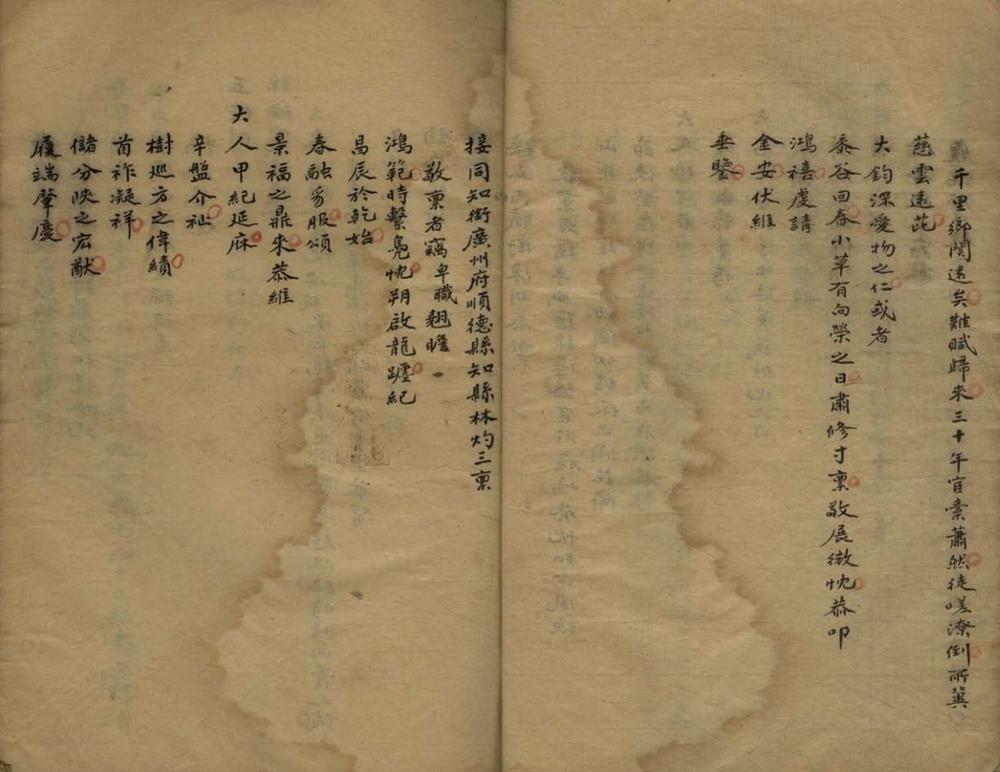 千里鄉関遠矣難賦歸來三十年官橐蕭然徒嗟潦倒所冀
慈雲遠芘
大鈞深愛物之仁或者
黍谷回春小草有向榮之日肅修寸稟敬展微忱恭叩
鴻禧虔請
金安伏維
垂鑒
接同知銜廣州府順德縣知縣林灼三稟
敬稟者竊卑職翹瞻
鴻範時繫鳧忱朔啟龍躔紀
昌辰於乾始
春融豸服頌
景福之鼎來恭維
大人甲紀延庥
辛盤介祉
樹巡方之偉績
首祚凝祥
儲分陝之宏猷
履端肇慶